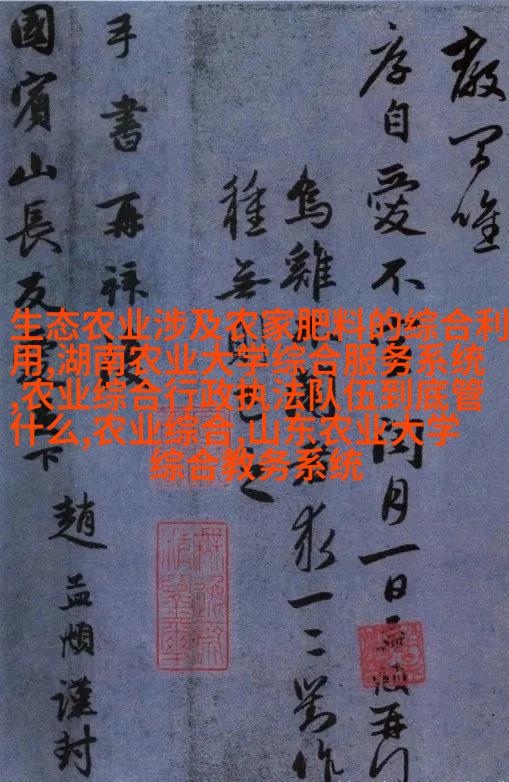 唯
自愛不
月一日孟頫再
烏雞
求一二對作
種無
手書再拜
國賓山長友
下
趙孟頫謹封
生态农业涉及农家肥料的综合利
用,湖南农业大学综合服务系统
,农业综合行政执法队伍到底管
什么,农业综合,山东农业大学
综合教务系统